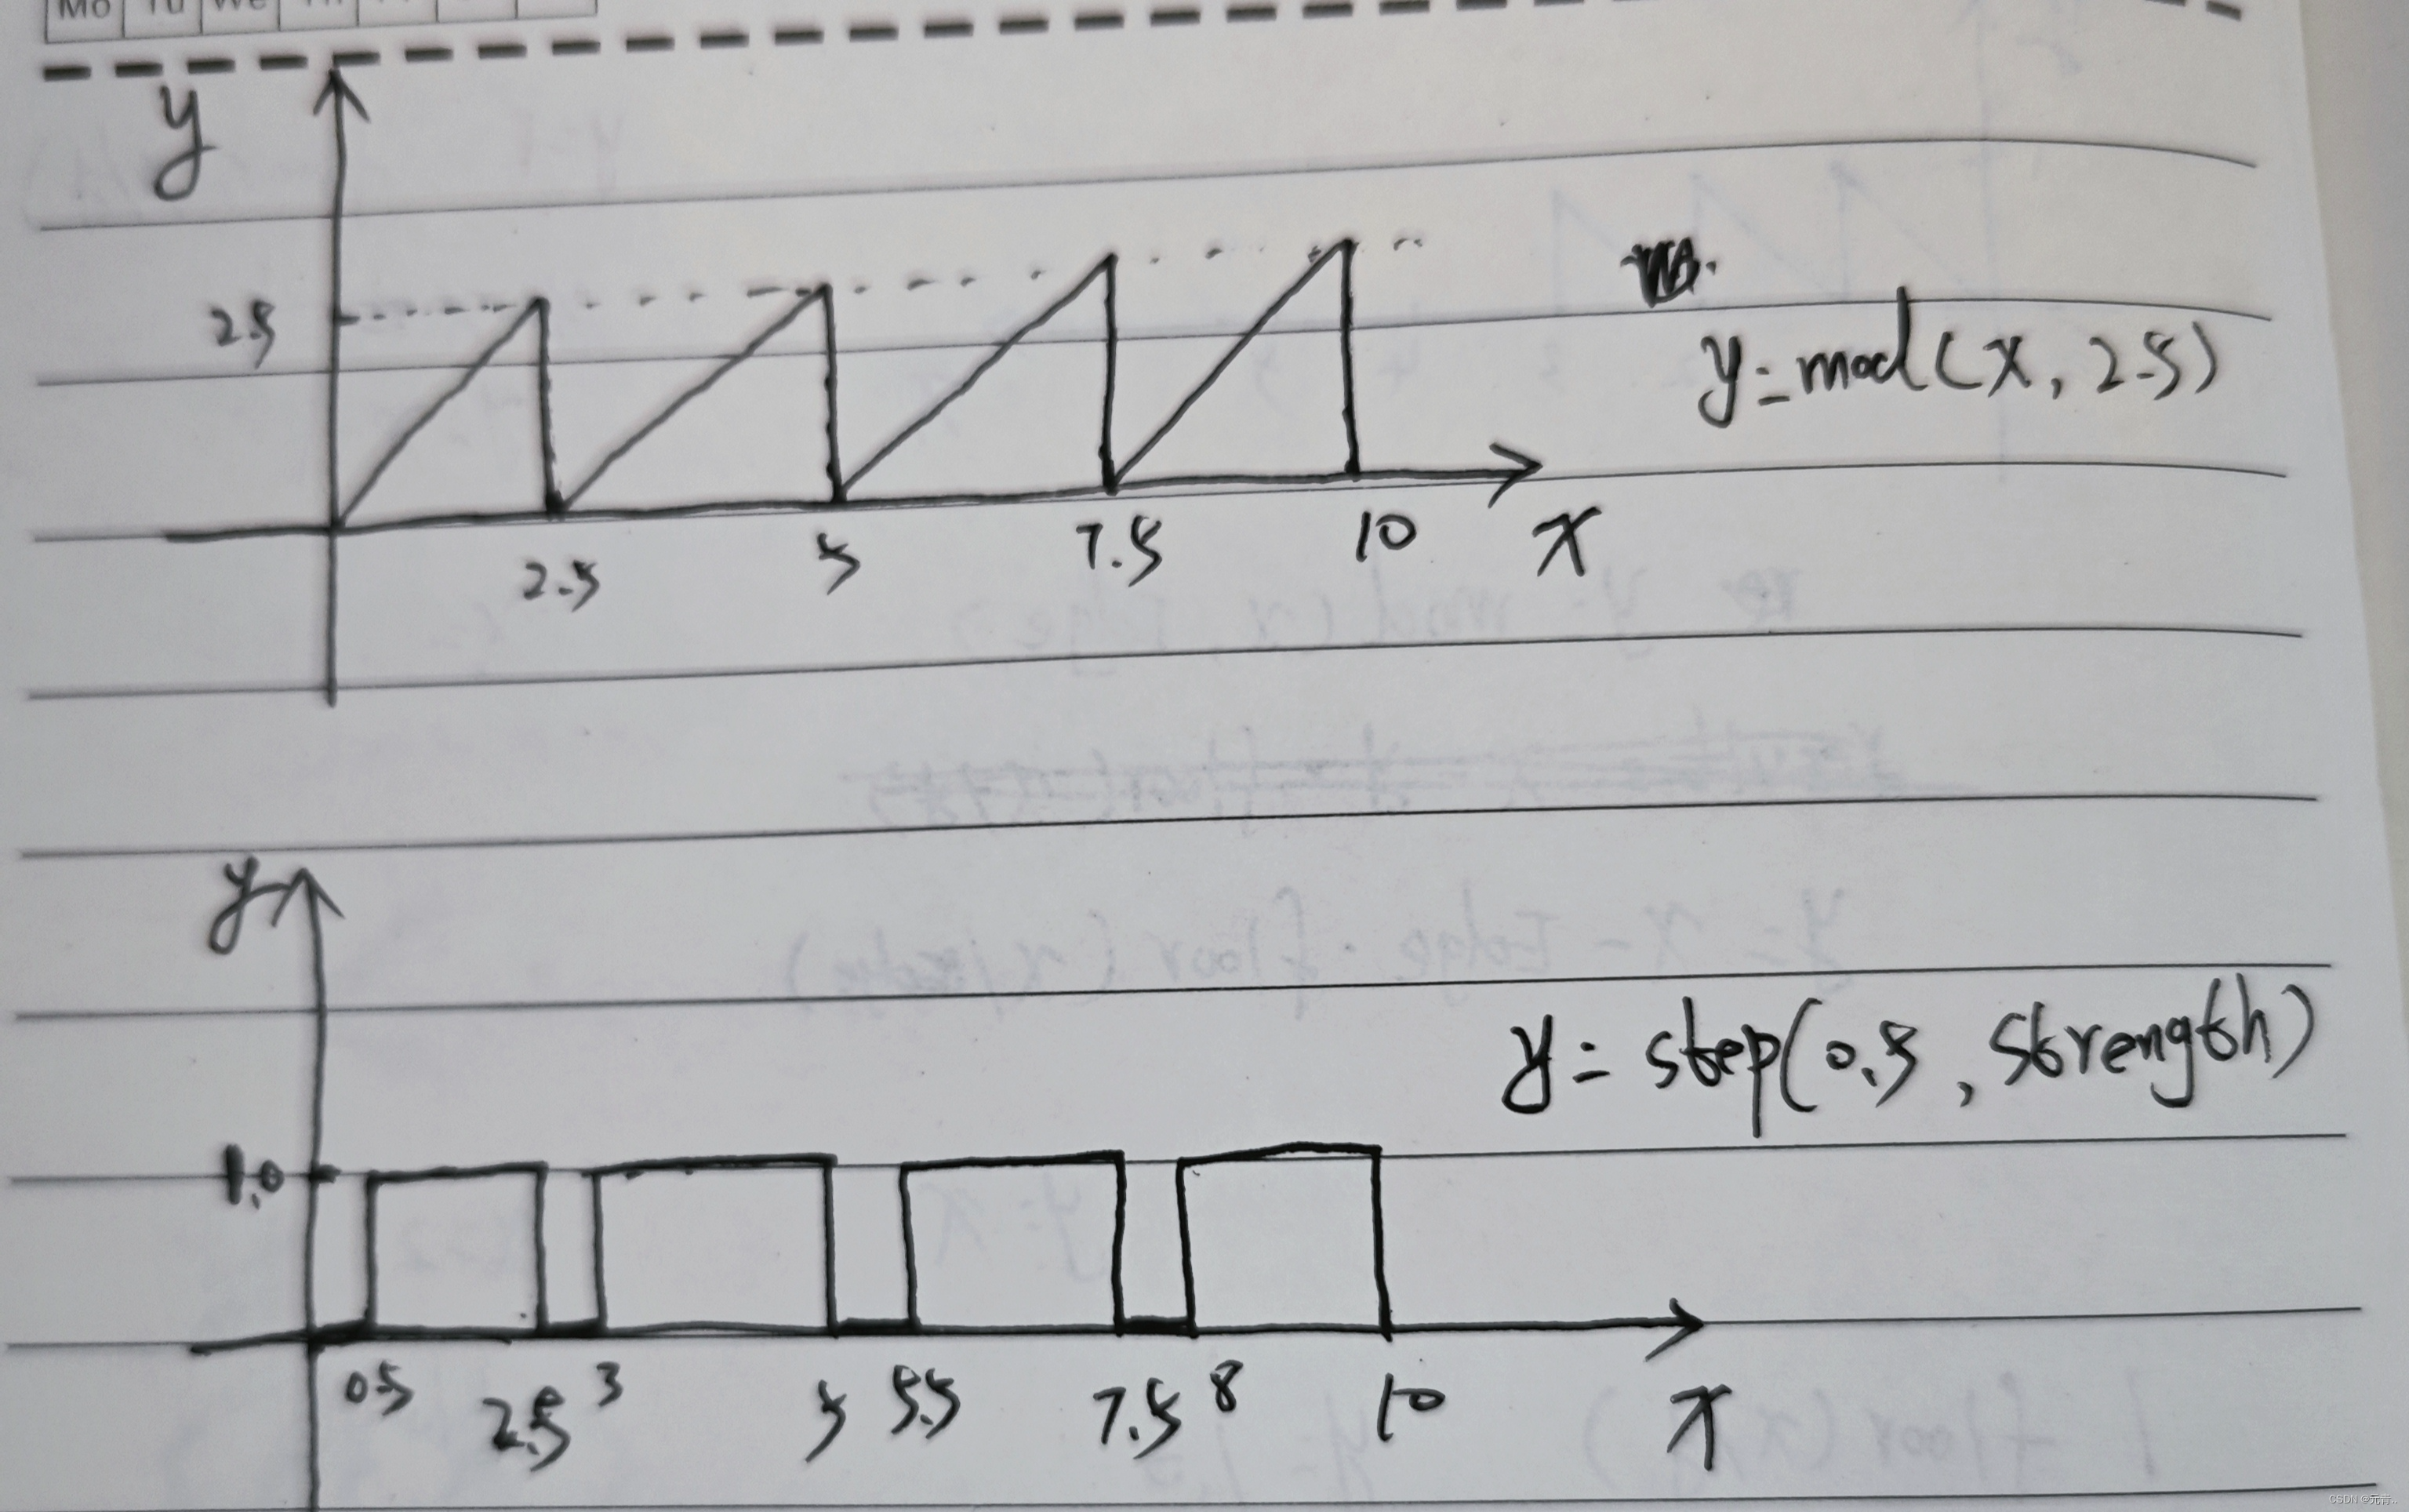 Mo Tu We
y
2.5
y=mod(x, 2.5)
2.5 5 7.5 10 x
y
y= step(0.5, strength)
1.0
0.5 2.5 3 5 5.5 7.5 8 10 x
CSDN @元青..